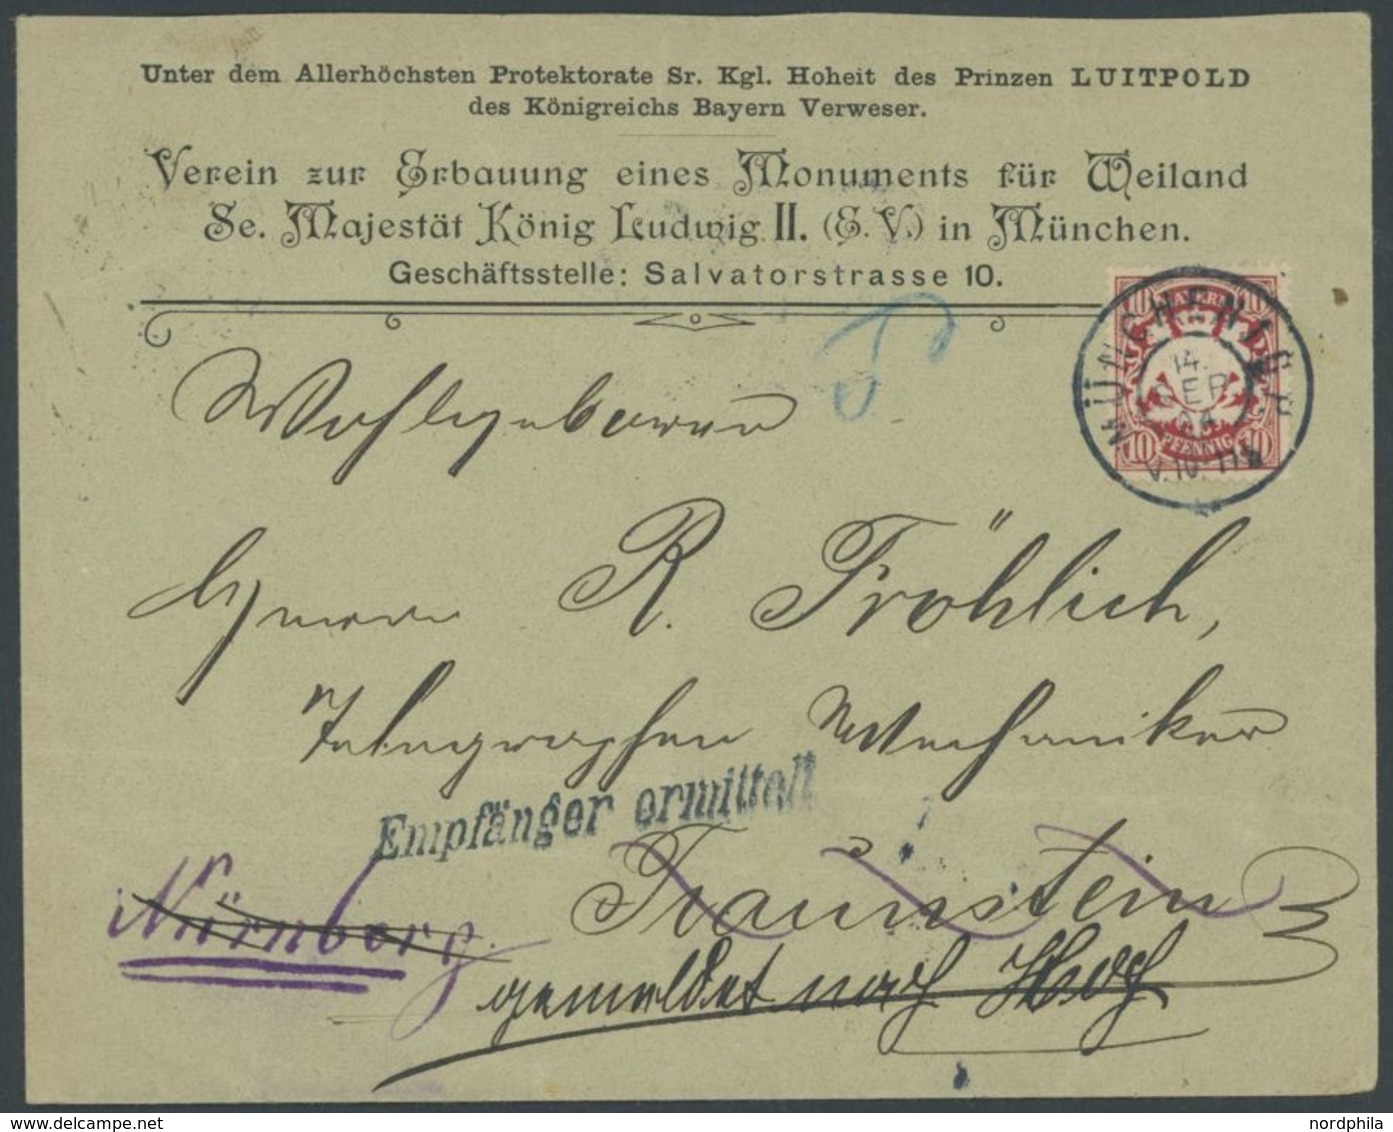 Unter dem Allerhöchsten Protektorate Sr. Kgl. Hoheit des Prinzen LUITPOLD
des Königreichs Bayern Verweser.
Verein zur Erbauung eines Monuments für Weiland
Se. Majestät König Ludwig II. (E.V.) in München.
Geschäftsstelle: Salvatorstrasse 10.
BAYERN
10 10
MÜNCHEN
14.
SEP.
V.10-11
10 PFENNIG 10
Wohlgeboren
Herrn R. Fröhlich,
Telegraphen Mechaniker
Empfänger ermittelt
Traunstein
Nürnberg
gemeldet nach
nordphila